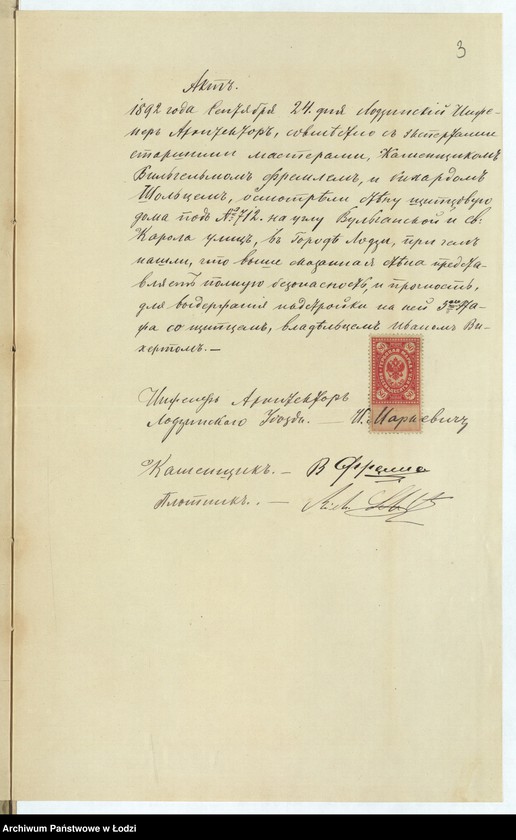 3
Актъ.
1892 года Сентября 24. дня Лодзинскій Инже-
неръ Архитекторъ, совмѣстно с экспертами
старшими мастерами, Каменщикомъ
Вильгельмомъ Фрешлемъ, и Рихардомъ
Шольцемъ, осмотрѣли стѣну щитовую
дома подъ № 712. на углу Вульчанской и св:
Карола улицъ, въ Городѣ Лодзи, при чемъ
нашли, что выше сказанная стѣна предста-
вляетъ полную безопасность, и прочность,
для выдержанія надстройки на ней 3го эта-
жа со щитомъ, владѣльцемъ Иваномъ Ви-
хертомъ. —
Инженеръ Архитекторъ
Лодзинскаго Уѣзда. — И. Маркевичъ
Каменщикъ. —
Плотникъ. —
Archiwum Państwowe w Łodzi